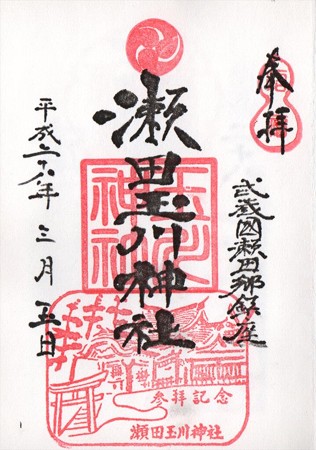 奉拝
武蔵國瀬田郷鎮座
瀬田玉川神社
玉川神社
平成二十八年三月五日
参拝記念
瀬田玉川神社